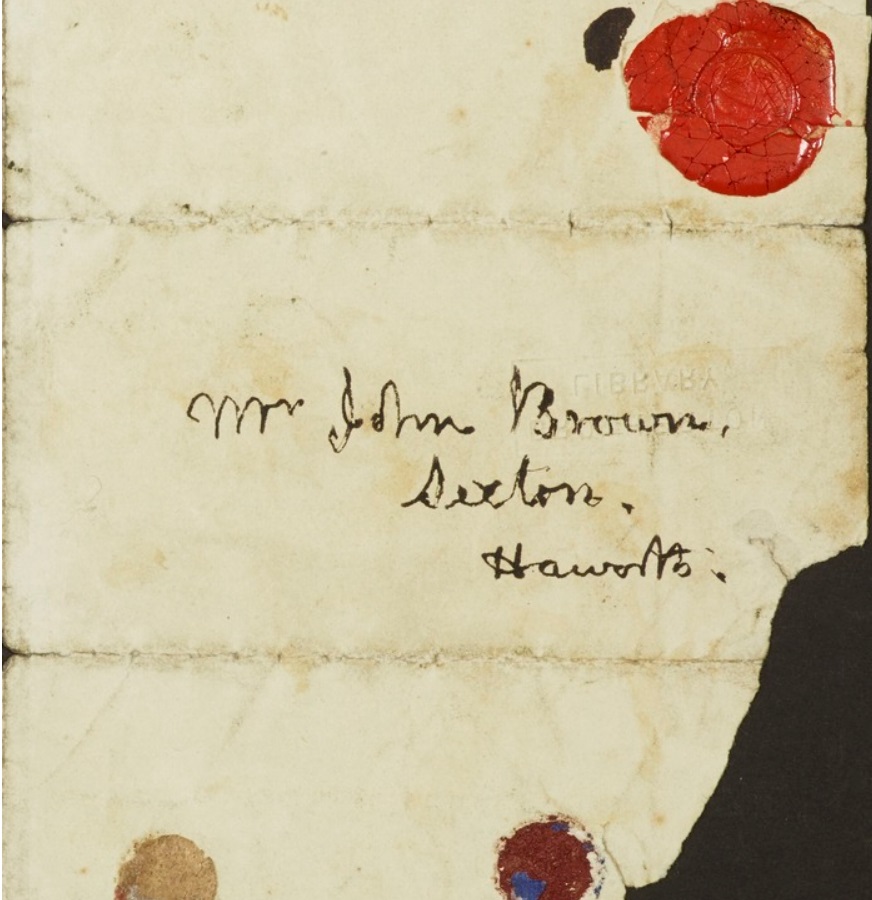 Mr John Brown,
Sexton.
Haworth.
LIBRARY